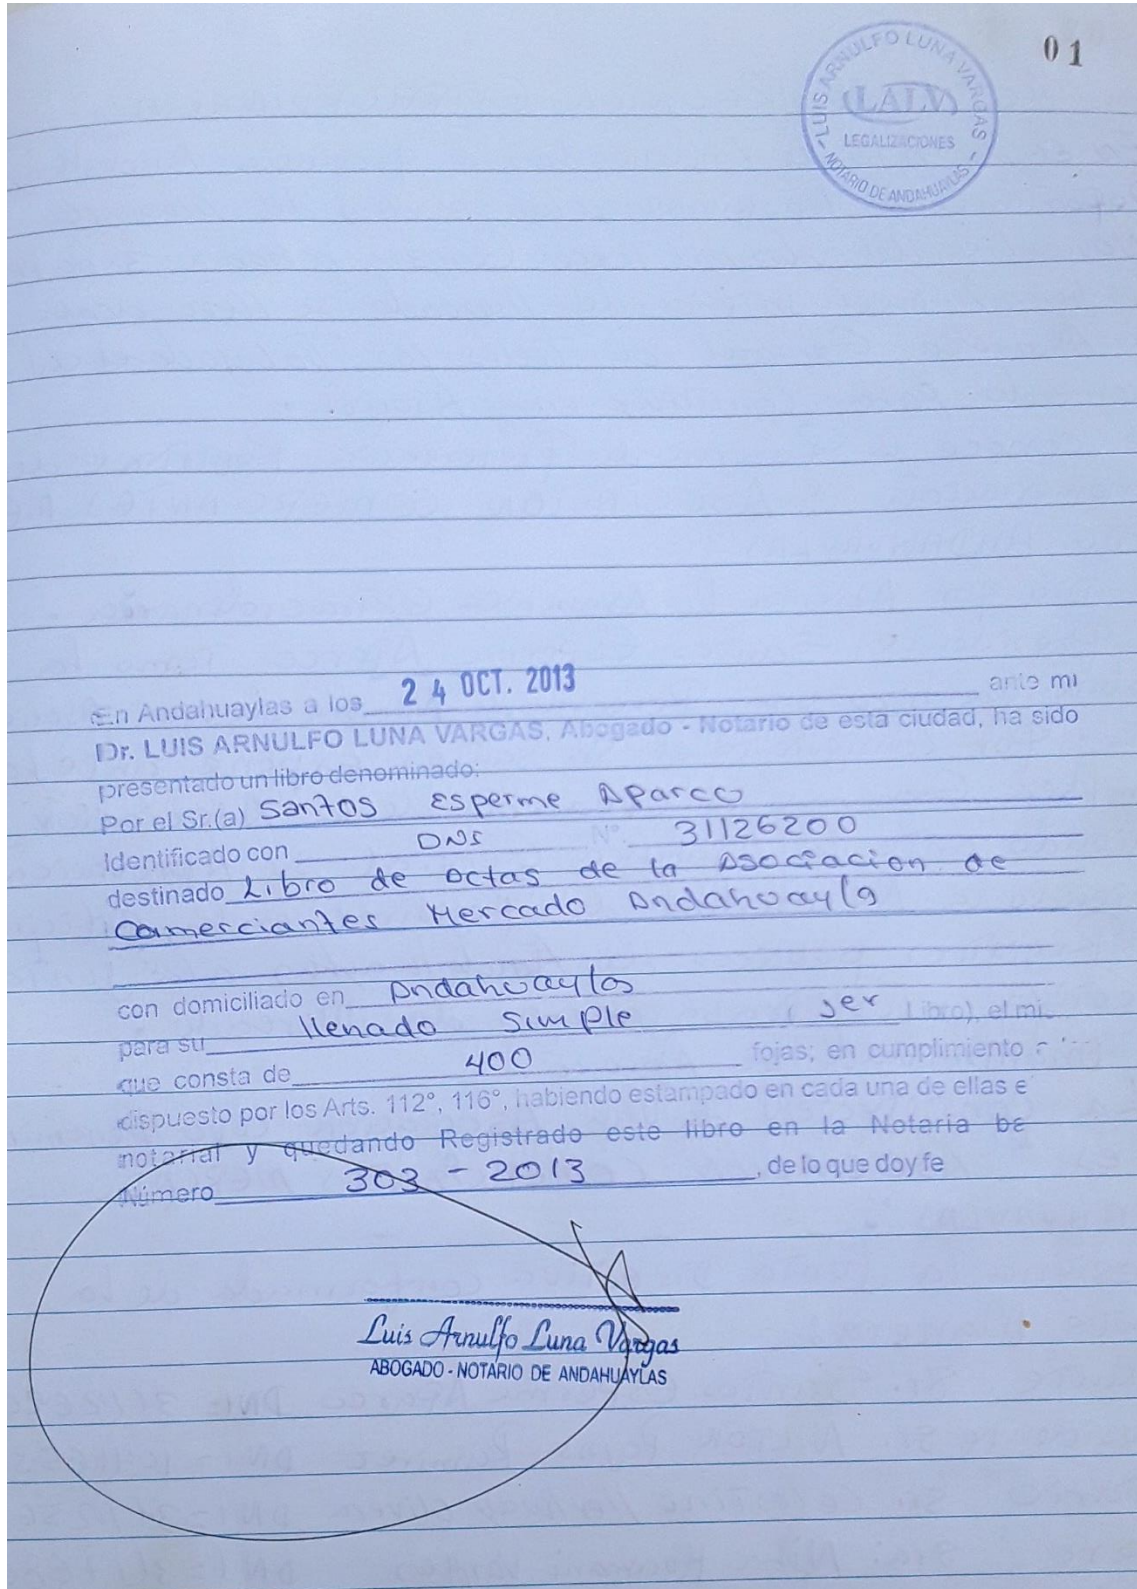 01
LUIS ARNULFO LUNA VARGAS
(LALV)
LEGALIZACIONES
NOTARIO DE ANDAHUAYLAS
En Andahuaylas a los 24 OCT. 2013 ante mi
Dr. LUIS ARNULFO LUNA VARGAS, Abogado - Notario de esta ciudad, ha sido
presentado un libro denominado:
Por el Sr.(a) Santos Esperme Aparco
Identificado con DNI N° 31126200
destinado Libro de actas de la Asociacion de
Comerciantes Mercado Andahuayla
con domiciliado en Andahuaylas
para su llenado Simple ( 1er Libro), el mi
que consta de 400 fojas; en cumplimiento a
dispuesto por los Arts. 112°, 116°, habiendo estampado en cada una de ellas e
notarial y quedando Registrado este libro en la Notaria ba
Número 303 - 2013, de lo que doy fe
Luis Arnulfo Luna Vargas
ABOGADO - NOTARIO DE ANDAHUAYLAS